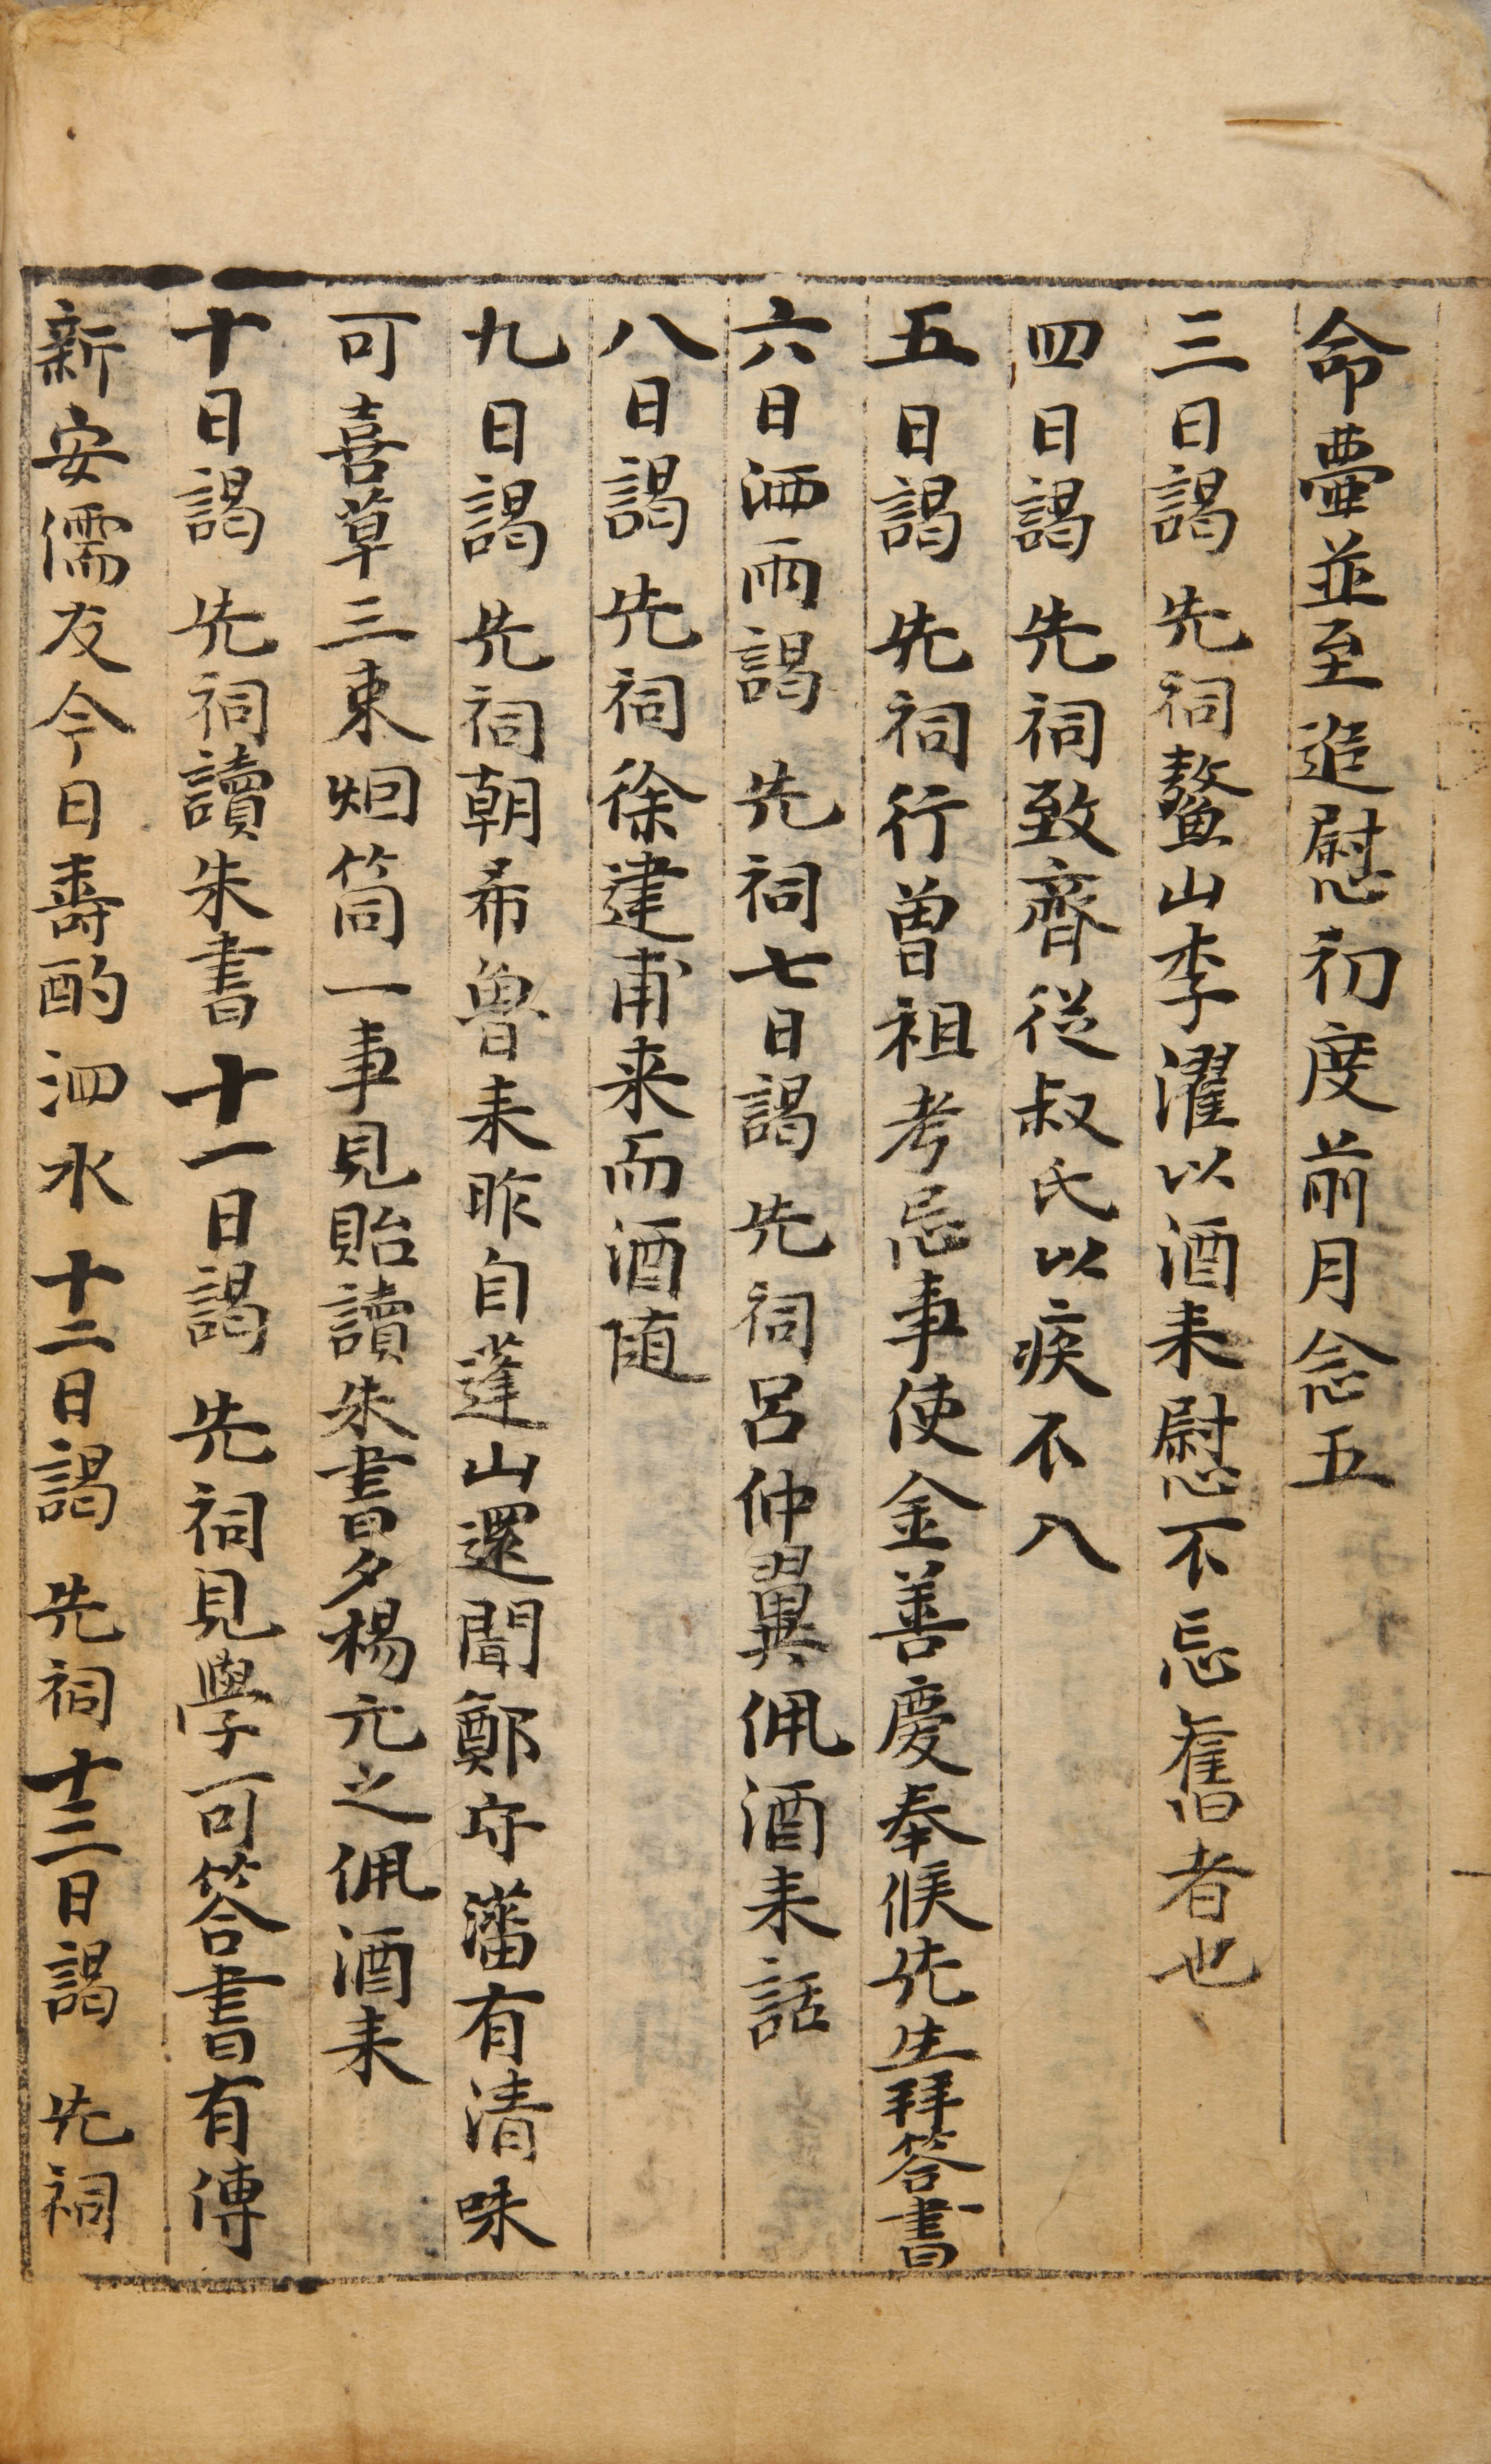 命壷並至追慰初度前月念五
三日謁 先祠鰲山李濯以酒来慰不忘舊者也
四日謁 先祠致齊從叔氏以疾不入
五日謁 先祠行曽祖考忌事使金善慶奉候先生拜答書
六日洒雨謁 先祠七日謁 先祠呂仲翼佩酒来話
八日謁 先祠徐建甫来而酒随
九日謁 先祠朝希魯来昨自蓬山還聞鄭守藩有清味
可喜草三束烟筒一事見貽讀朱書夕楊元之佩酒来
十日謁 先祠讀朱書十一日謁 先祠見學可答書有傳
新安儒友今日壽酌泗水十二日謁 先祠十三日謁 先祠